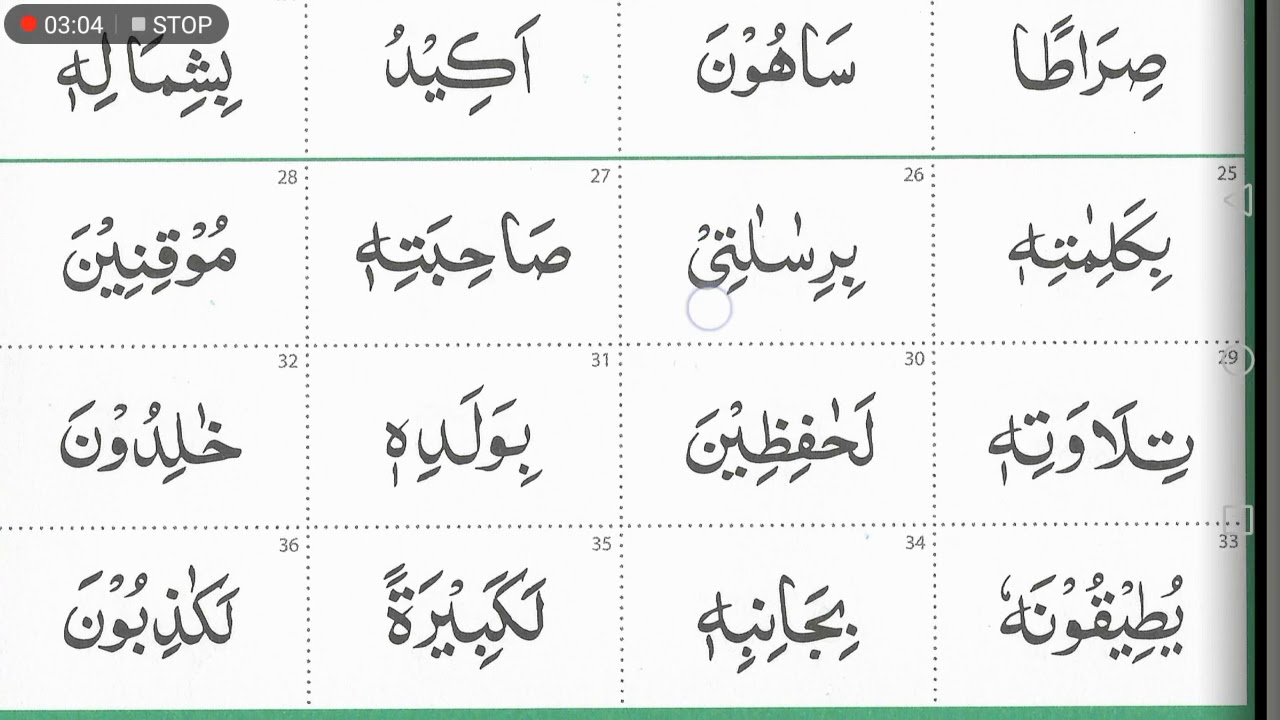 03:04 STOP
صِرَاطًا سَاهُوْنَ اَكِيْدُ بِشِمَالِهٖ
25 26 27 28
بِكَلِمٰتِهٖ بِرِسٰلٰتِيْ صَاحِبَتِهٖ مُوْقِنِيْنَ
29 30 31 32
تِلَاوَتِهٖ لَحٰفِظِيْنَ بِوَلَدِهٖ خٰلِدُوْنَ
33 34 35 36
يُطِيْقُوْنَهٗ بِجَانِبِهٖ لَكَبِيْرَةً لَكٰذِبُوْنَ